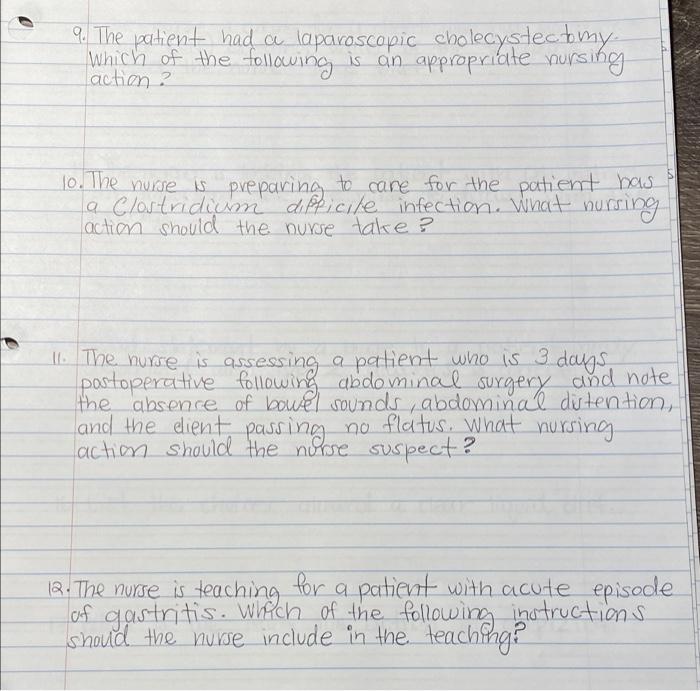 9. The patient had a laparoscopic cholecystectomy.
Which of the following is an appropriate nursing
action?
10. The nurse is preparing to care for the patient has
a Clostridium difficile infection. What nursing
action should the nurse take?
11. The nurse is assessing a patient who is 3 days
postoperative following abdominal surgery and note
the absence of bowel sounds, abdominal distention,
and the client passing no flatus. What nursing
action should the nurse suspect?
12. The nurse is teaching for a patient with acute episode
of gastritis. Which of the following instructions
should the nurse include in the teaching?